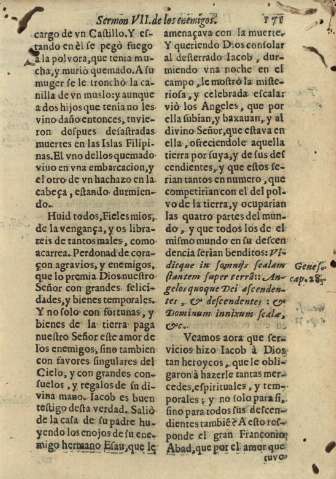 Sermon VII. de los enemigos. 171
cargo de vn Castillo. Y es-
tando en èl se pegò fuego
a la polvora, que tenia mu-
cha, y murió quemado. A su
muger se le tronchò la ca-
nilla de vn muslo: y aunque
a dos hijos que tenia no les
vino daño entonces, tuvie-
ron despues desastradas
muertes en las Islas Filipi-
nas. El vno dellos quemado
viuo en vna embarcacion, y
el otro de vn hachazo en la
cabeça, estando durmien-
do.
Huid todos, Fieles mios,
de la vengança, y os libra-
reis de tantos males, como
acarrea. Perdonad de cora-
çon agravios, y enemigos,
que lo premia Dios nuestro
Señor con grandes felici-
dades, y bienes temporales.
Y no solo con fortunas, y
bienes de la tierra paga
nuestro Señor este amor de
los enemigos, sino tambien
con favores singulares del
Cielo, y con grandes con-
suelos, y regalos de su di-
vina mano. Iacob es buen
testigo desta verdad. Saliò
de la casa de su padre hu-
yendo los enojos de su ene-
migo hermano Esau, que le
amenaçava con la muerte.
Y queriendo Dios consolar
al desterrado Iacob, dur-
miendo vna noche en el
campo, le mostrò la miste-
riosa, y celebrada escala:
viò los Angeles, que por
ella subian, y baxauan, y al
divino Señor, que estava en
ella, ofreciendole aquella
tierra por suya, y de sus des
cendientes, y que estos se-
rian tantos en numero, que
competirian con el del pol-
vo de la tierra, y ocuparian
las quatro partes del mun-
do, y que todos los de el
mismo mundo en su descen
dencia serian benditos: Vi-
ditque in somnijs scalam
stantem super terrã: An-
gelos quoque Dei ascenden-
tes, & descendentes: &
Dominum innixum scalæ,
&c.
Genes.
cap. 28.
Veamos aora que ser-
vicios hizo Iacob à Dios
tan heroycos, que le obli-
garon à hazerle tantas mer-
cedes, espirituales, y tem-
porales; y no solo para si,
sino para todos sus descen-
dientes tambiẽ? A esto res-
ponde el gran Franconio
Abad, que por el amor que
tuvo